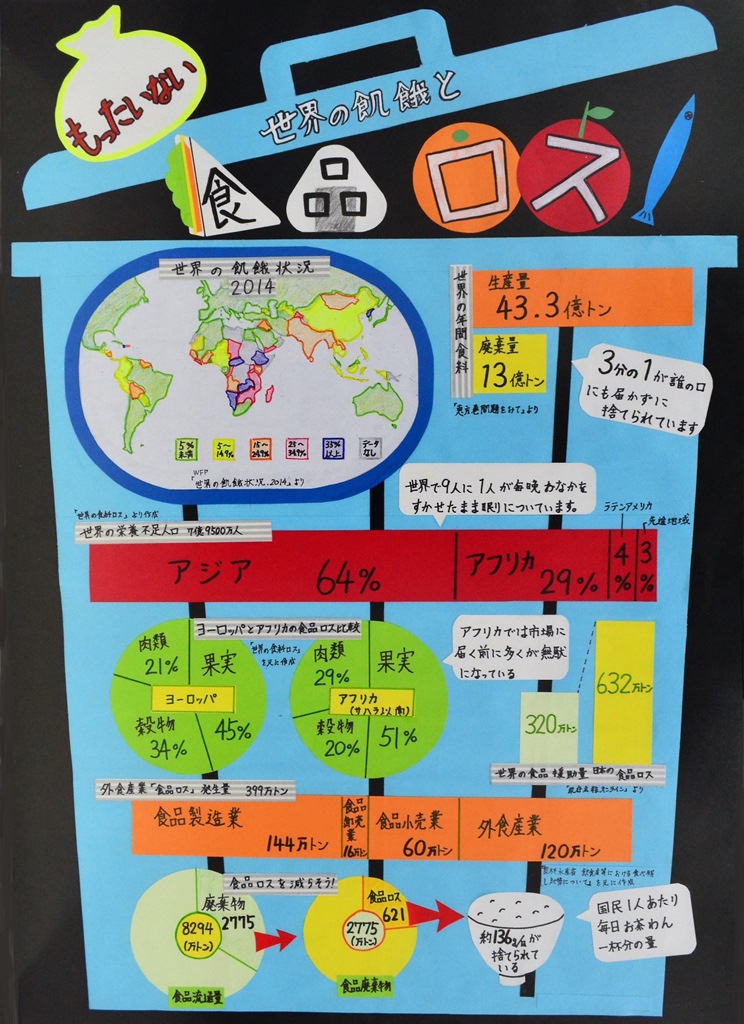 もったいない
世界の飢餓と
食品ロス
世界の飢餓状況
2014
5%未満
5~14.9%
15~24.9%
25~34.9%
35%以上
データなし
WFP
「世界の飢餓状況.2014」より
世界の年間食料
生産量
43.3億トン
廃棄量
13億トン
3分の1が誰の口
にも届かずに
捨てられています
世界で9人に1人が毎晩おなかを
すかせたまま眠りについています。
「世界の食料ロス」より作成
世界の栄養不足人口 7億9500万人
ラテンアメリカ
先進地域
アジア 64%
アフリカ 29%
4%
3%
ヨーロッパとアフリカの食品ロス比較
「世界の食料ロス」
を元に作成
肉類
21%
果実
45%
穀物
34%
ヨーロッパ
肉類
29%
果実
51%
穀物
20%
アフリカ
(サハラ以南)
アフリカでは市場に
届く前に多くが無駄
になっている
320万トン
632万トン
世界の食品援助量 日本の食品ロス
「政府広報オンライン」より
外食産業「食品ロス」発生量 399万トン
食品製造業
144万トン
食品卸売業
16万トン
食品小売業
60万トン
外食産業
120万トン
食品ロスを減らそう!
廃棄物
2775
8294
(万トン)
食品流通量
食品ロス
621
2775
(万トン)
食品廃棄物
約136gが
捨てられて
いる
国民1人あたり
毎日お茶わん
一杯分の量